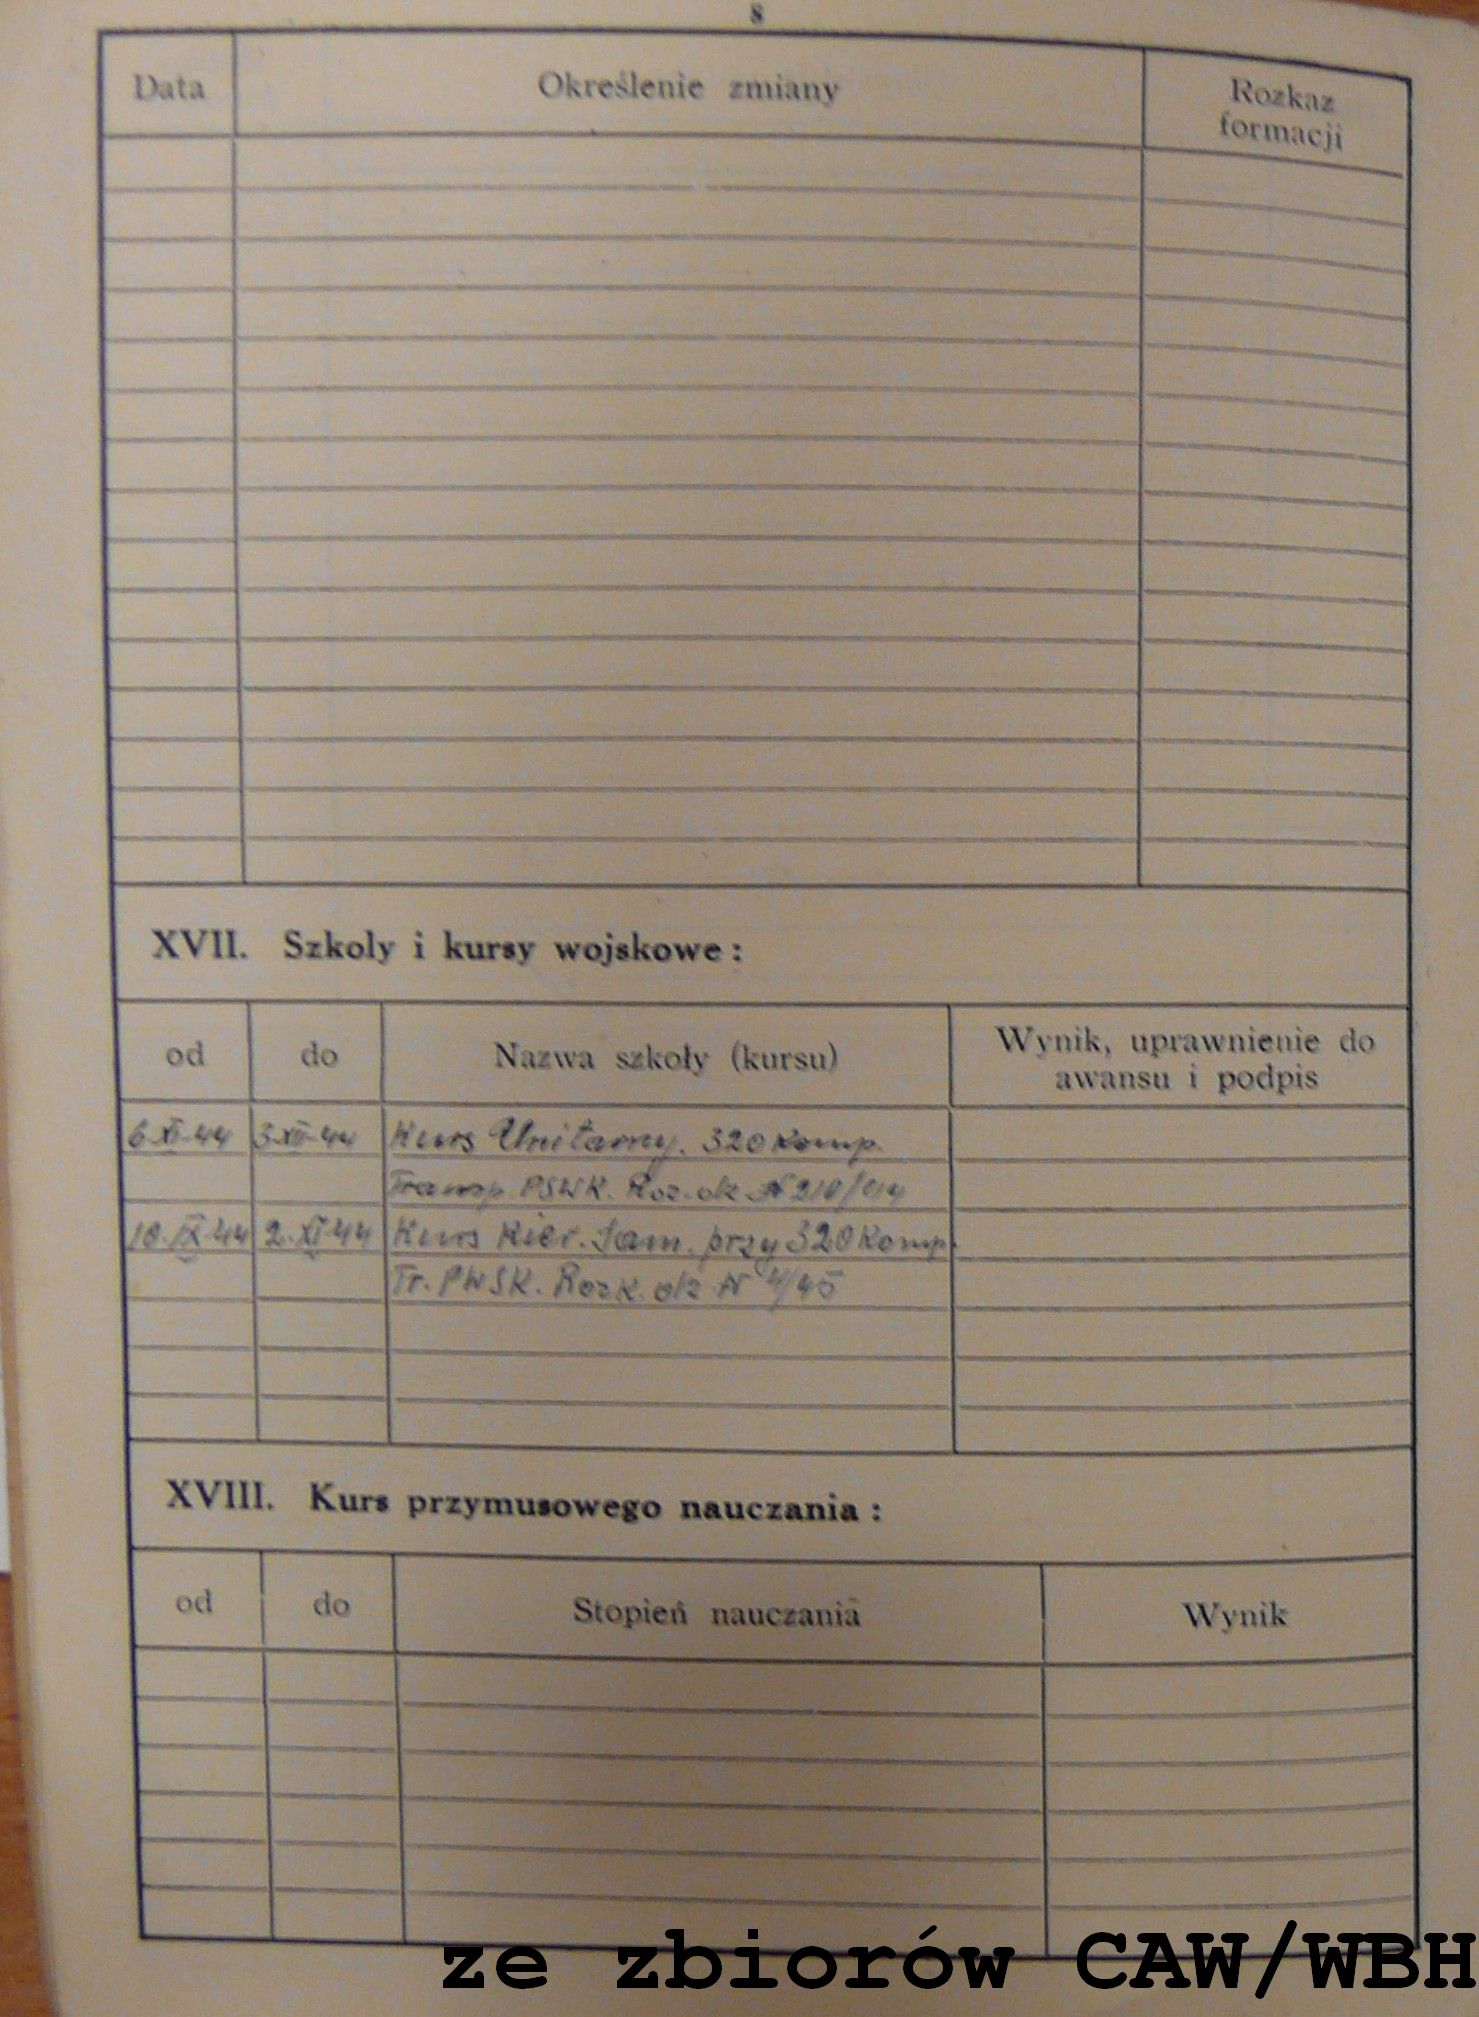 8
Data Określenie zmiany Rozkaz formacji
XVII. Szkoły i kursy wojskowe:
od do Nazwa szkoły (kursu) Wynik, uprawnienie do awansu i podpis
6.XI.44 3.XII.44 Kurs Unitarny. 320 Komp.
Transp. PSWK. Roz. ok. N 210/44
10.IX.44 2.XI.44 Kurs Kier. Sam. przy 320 Komp.
Tr. PWSK. Rozk. ok. N 4/45
XVIII. Kurs przymusowego nauczania:
od do Stopień nauczania Wynik
ze zbiorów CAW/WBH